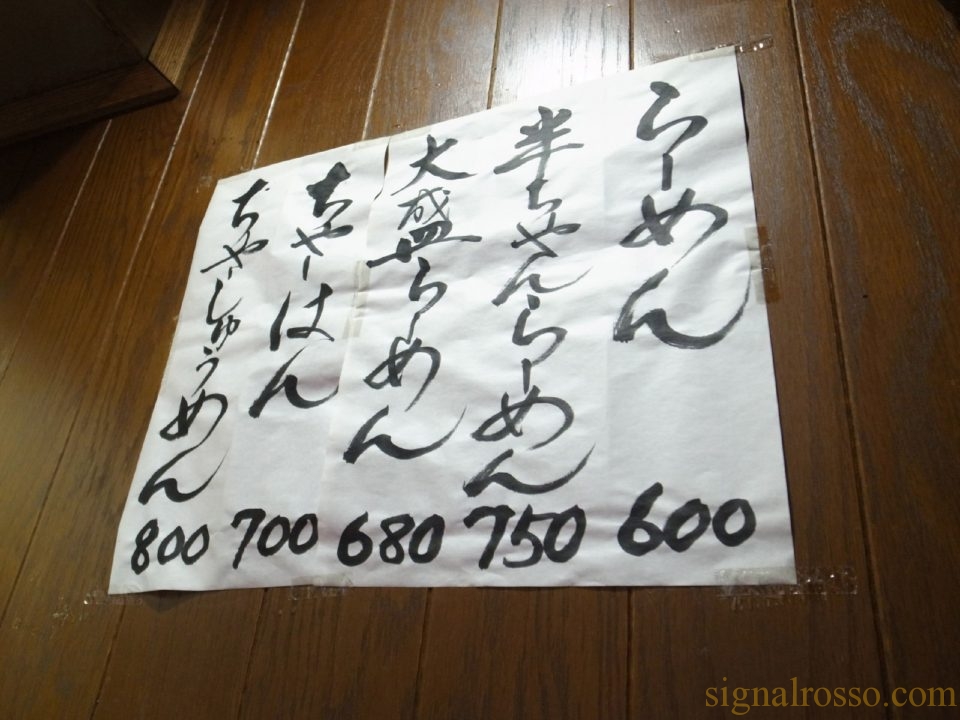 らーめん 600
半ちゃんらーめん 750
大盛らーめん 680
ちゃーはん 700
ちゃーしゅうめん 800
signalrosso.com